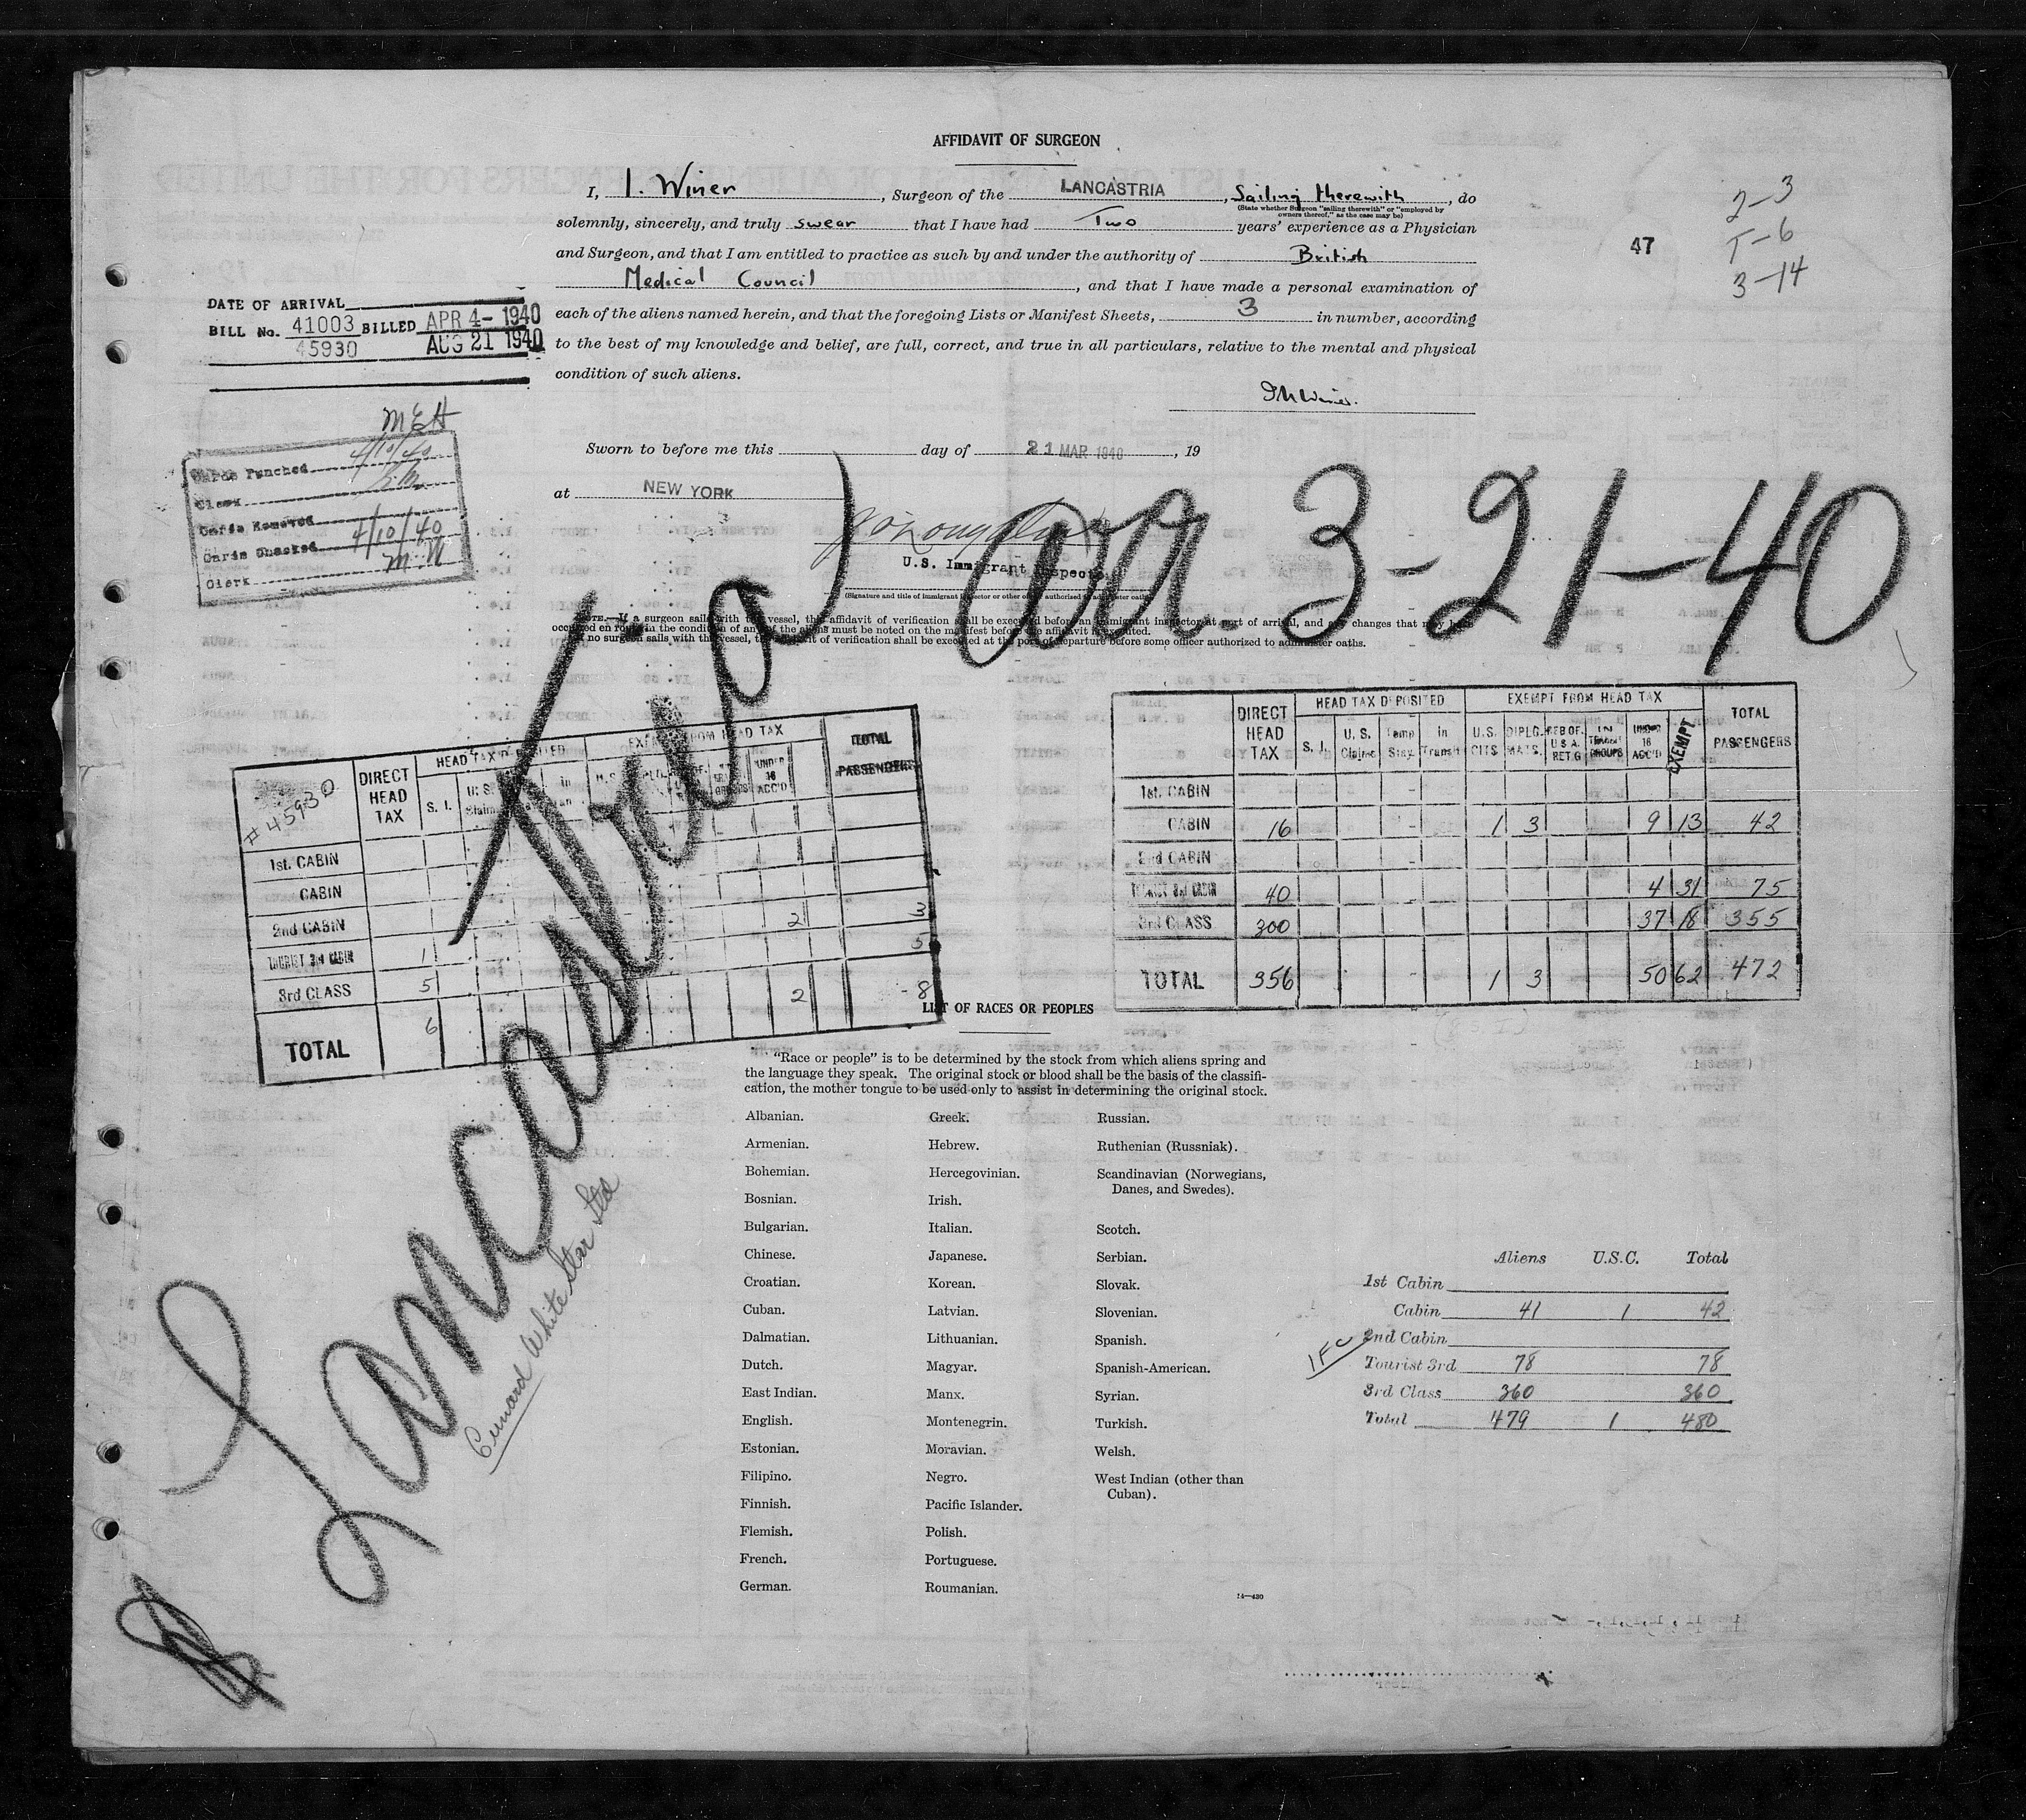 AFFIDAVIT OF SURGEON
I, I. Winer, Surgeon of the LANCASTRIA, Sailing therewith, do
(State whether Surgeon "sailing therewith" or "employed by
owners thereof," as the case may be)
solemnly, sincerely, and truly swear that I have had Two years' experience as a Physician
and Surgeon, and that I am entitled to practice as such by and under the authority of British
Medical Council, and that I have made a personal examination of
each of the aliens named herein, and that the foregoing Lists or Manifest Sheets, 3 in number, according
to the best of my knowledge and belief, are full, correct, and true in all particulars, relative to the mental and physical
condition of such aliens.
2-3
T-6
3-14
47
DATE OF ARRIVAL
BILL No. 41003 BILLED APR 4- 1940
45930 AUG 21 1940
MEH
Cards Punched 4/10/40
Clerk
Cards Removed
Cards Checked 4/10/40
Clerk M.N
Sworn to before me this day of 21 MAR 1940, 19
at NEW YORK
U.S. Immigrant Inspector
(Signature and title of immigrant inspector or other officer authorized to administer oath)
Lancastria arr. 3-21-40
Cunard White Star Ltd
NOTE.—If a surgeon sails with the vessel, this affidavit of verification shall be executed before an immigrant inspector at port of arrival, and any changes that may have
occurred en route in the condition of any of the aliens must be noted on the manifest before the affidavit is executed.
If no surgeon sails with the vessel, the affidavit of verification shall be executed at the port of departure before some officer authorized to administer oaths.
# 45930 DIRECT HEAD TAX HEAD TAX DEPOSITED EXEMPT FROM HEAD TAX TOTAL PASSENGERS
S. I. U. S. Claims in UNDER 16 ACC'D
1st. CABIN
CABIN
2nd CABIN
TOURIST 3rd CABIN 1 2 3
3rd CLASS 5 5
TOTAL 6 2 8
DIRECT HEAD TAX HEAD TAX DEPOSITED EXEMPT FROM HEAD TAX TOTAL PASSENGERS
S. I. U. S. Claims Temp Stay In Transit U.S. CITS. DIPLO. MATS. REB OF. U S A. RET'G IN TRANSIT GROUPS UNDER 16 ACC'D EXEMPT
1st. CABIN
CABIN 16 1 3 9 13 42
2nd CABIN
TOURIST 3rd CABIN 40 4 31 75
3rd CLASS 300 37 18 355
TOTAL 356 1 3 50 62 472
LIST OF RACES OR PEOPLES
"Race or people" is to be determined by the stock from which aliens spring and
the language they speak. The original stock or blood shall be the basis of the classifi-
cation, the mother tongue to be used only to assist in determining the original stock.
Albanian.
Armenian.
Bohemian.
Bosnian.
Bulgarian.
Chinese.
Croatian.
Cuban.
Dalmatian.
Dutch.
East Indian.
English.
Estonian.
Filipino.
Finnish.
Flemish.
French.
German.
Greek.
Hebrew.
Hercegovinian.
Irish.
Italian.
Japanese.
Korean.
Latvian.
Lithuanian.
Magyar.
Manx.
Montenegrin.
Moravian.
Negro.
Pacific Islander.
Polish.
Portuguese.
Roumanian.
Russian.
Ruthenian (Russniak).
Scandinavian (Norwegians,
Danes, and Swedes).
Scotch.
Serbian.
Slovak.
Slovenian.
Spanish.
Spanish-American.
Syrian.
Turkish.
Welsh.
West Indian (other than
Cuban).
14—430
Aliens U.S.C. Total
1st Cabin
Cabin 41 1 42
2nd Cabin
Tourist 3rd 78 78
3rd Class 360 360
Total 479 1 480